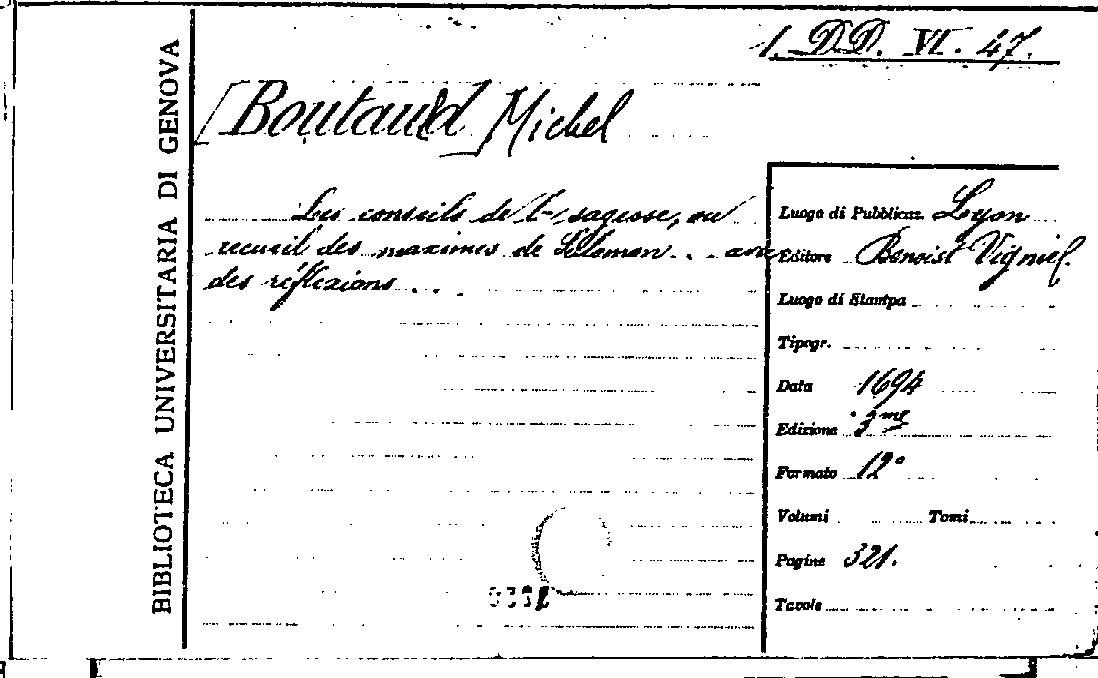 1. DD. VI. 47.
BIBLIOTECA UNIVERSITARIA DI GENOVA
[Boutauld Michel
Les conseils de la sagesse, ou
recueil des maximes de Salomon . . . avec
des réflexions . . .
Luogo di Pubblicaz. Lyon
Editore Benoist Vignieu.
Luogo di Stampa
Tipogr.
Data 1694
Edizione 3me
Formato 12°
Volumi Tomi
Pagine 321.
Tavole